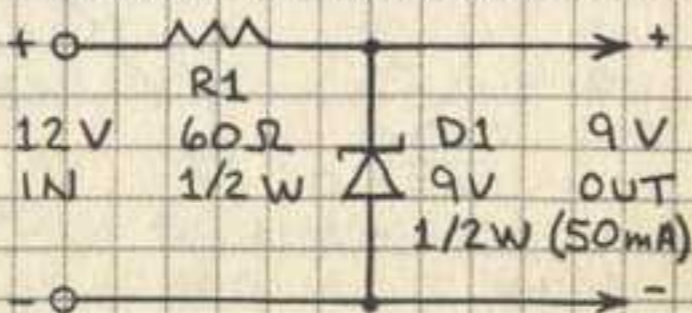 + +
R1
12V 60Ω D1 9V
IN 1/2 W 9V OUT
1/2W (50mA)
- -